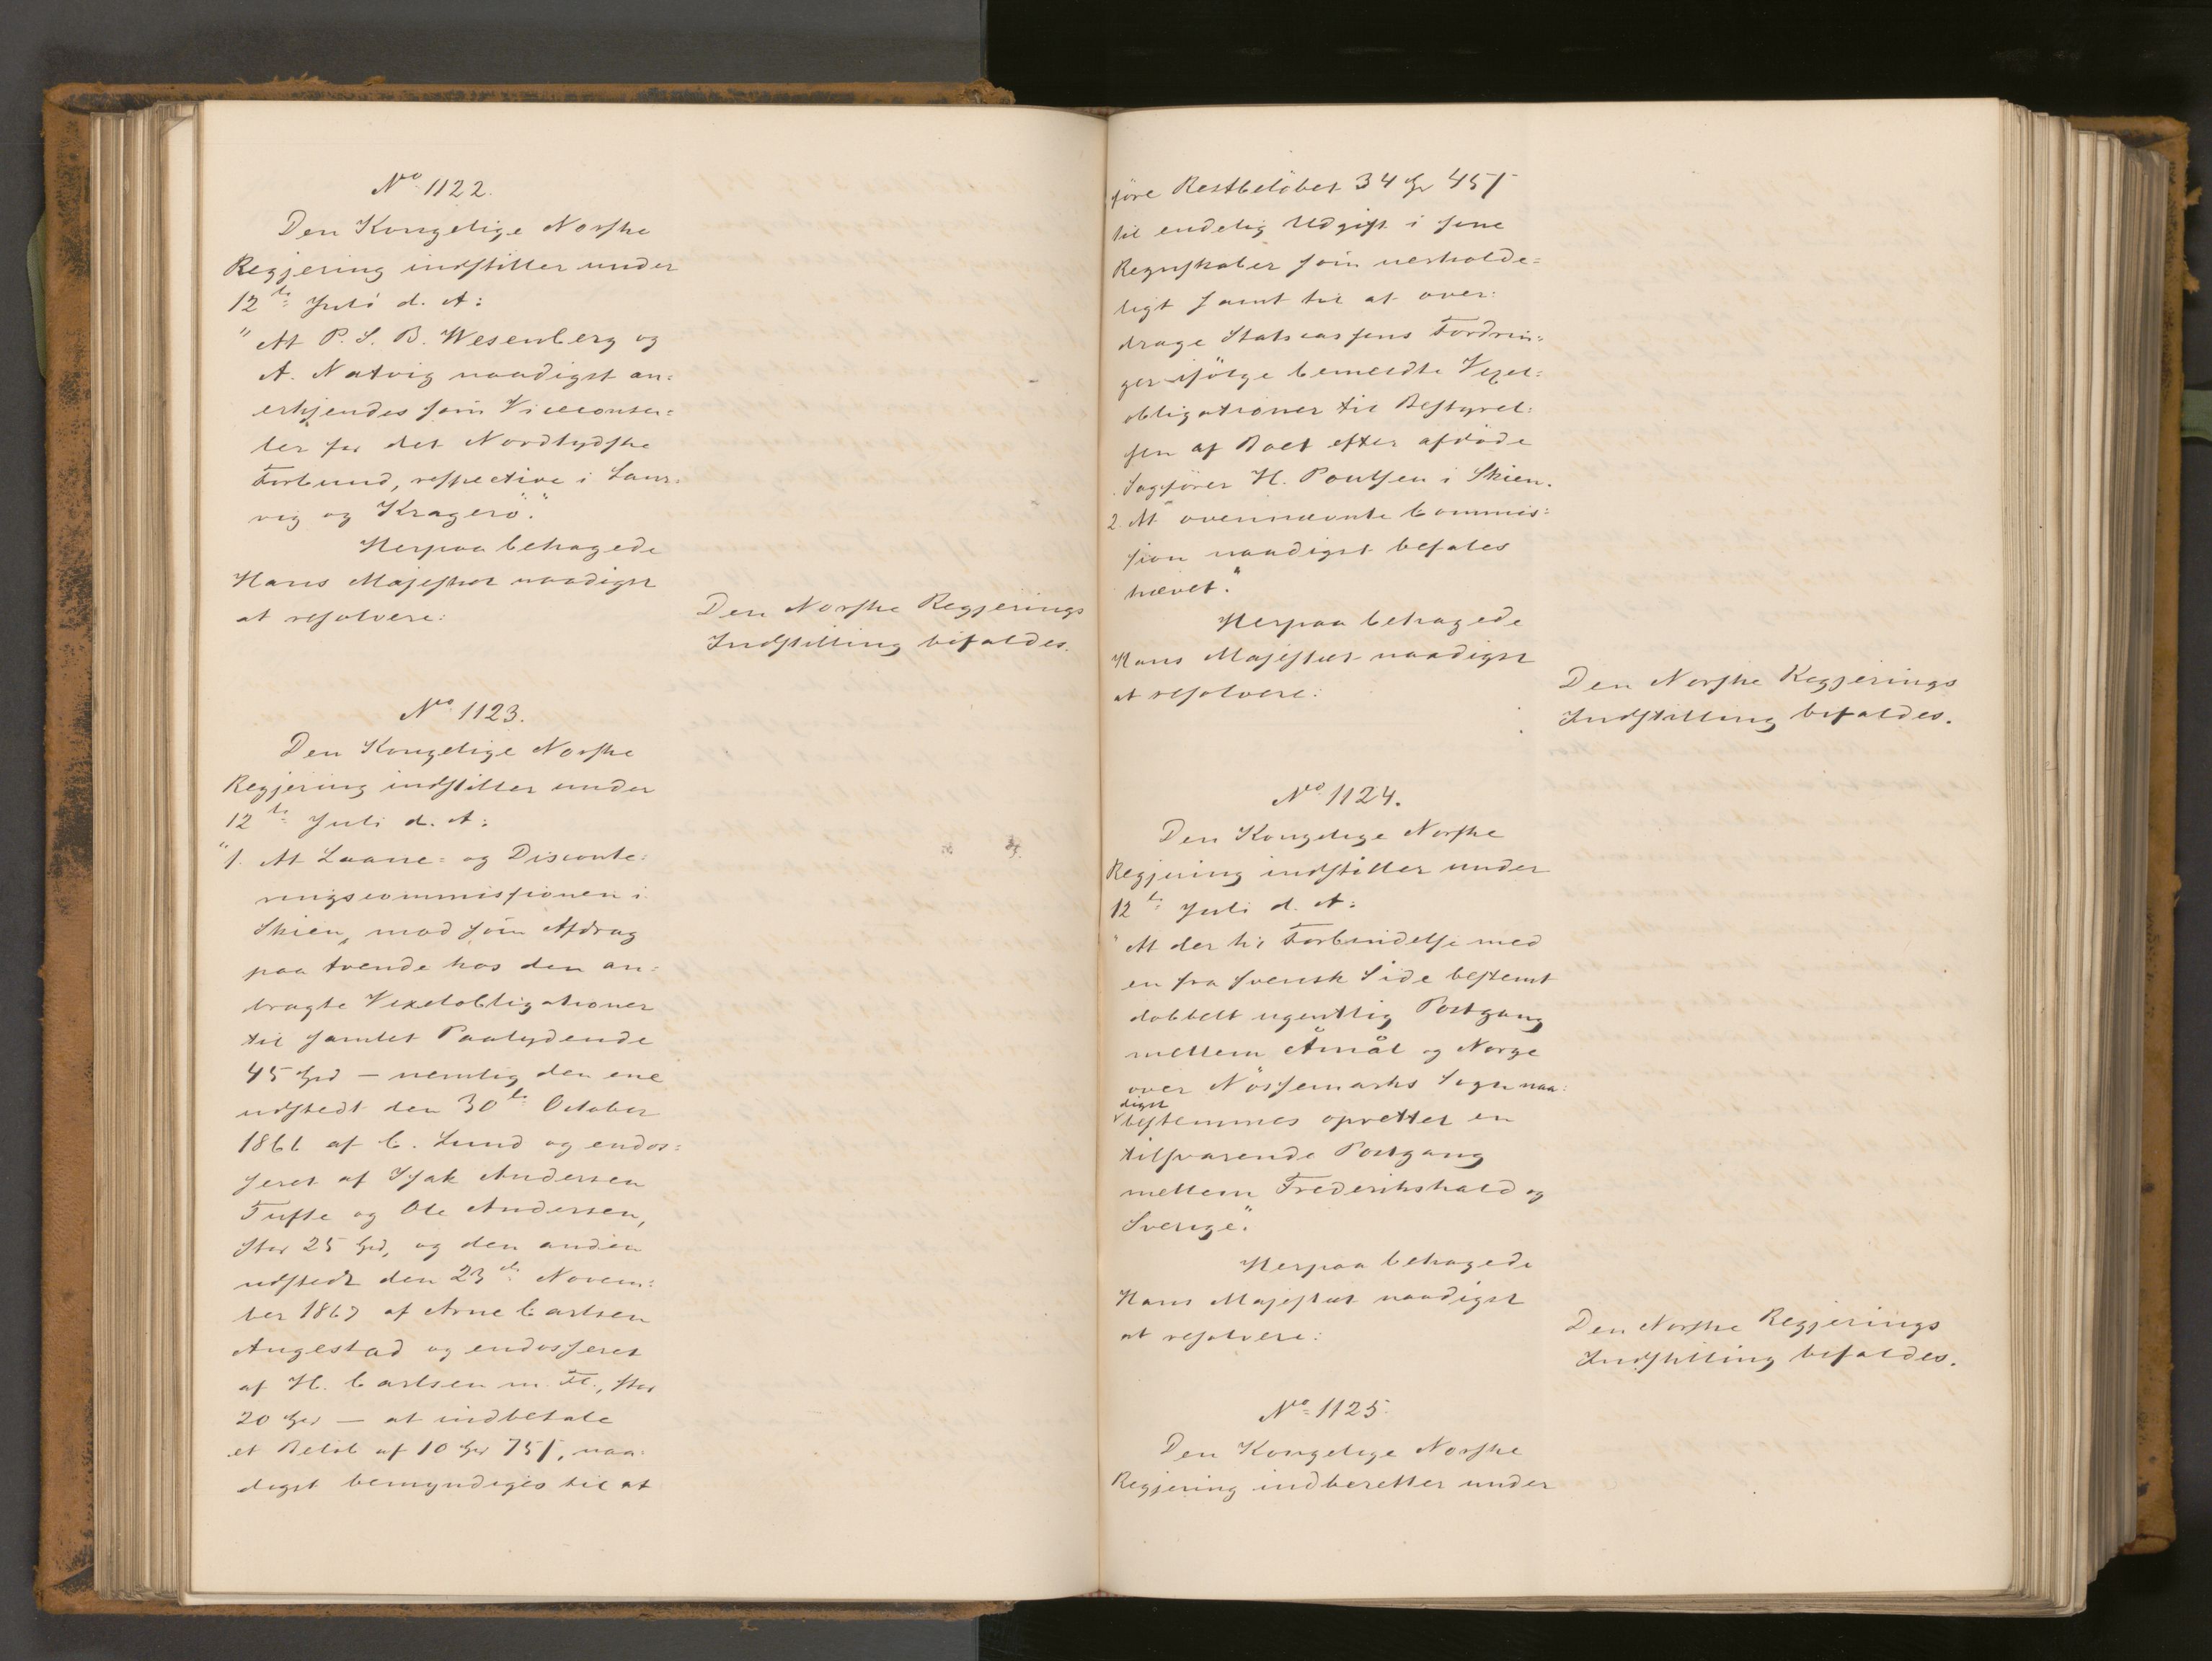 No 1122.
Den Kongelige Norske
Regjering indstiller under
12te Juli d. A:
"At P. S. B. Wesenberg og
A. Natvig naadigst an=
erkjendes som Viceconsu=
ler for det Nordtydske
Forbund, respective i Laur=
vig og Kragerö."
Herpaa behagede
Hans Majestæt naadigst
at resolvere:
Den Norske Regjerings
Indstilling bifaldes.
No 1123.
Den Kongelige Norske
Regjering indstiller under
12te Juli d. A:
"1. At Laane= og Disconte=
ringscommissionen i
Skien, mod som Afdrag
paa tvende hos den an=
bragte Vexelobligationer
til samlet Paalydende
45 Spd — nemlig den ene
udstedt den 30te October
1866 af C. Lund og endos=
seret af Isak Andersen
Tufte og Ole Andersen,
stor 25 Spd, og den anden
udstedt den 23de Novem=
ber 1867 af Arne Carlsen
Augestad og endosseret
af H. Carlsen m. Fl., stor
20 Spd — at indbetale
et Belöb af 10 Spd 75 s, naa=
digst bemyndiges til at
före Restbelöbet 34 Spd 45 s
til endelig Udgift i sine
Regnskaber som uerholde=
ligt samt til at over=
drage Statscassens Fordrin=
ger ifölge bemeldte Vexel=
obligationer til Bestyrel=
sen af Boet efter afdöde
Sagförer H. Poulsen i Skien.
2. At ovennævnte Commis=
sion naadigst befales
hævet."
Herpaa behagede
Hans Majestæt naadigst
at resolvere:
Den Norske Regjerings
Indstilling bifaldes.
No 1124.
Den Kongelige Norske
Regjering indstiller under
12te Juli d. A:
"At der i Forbindelse med
en fra svensk Side bestemt
dobbelt ugentlig Postgang
mellem Åmål og Norge
over Nössemarks Sogn naa=
digst
bestemmes oprettet en
tilsvarende Postgang
mellem Frederikshald og
Sverige."
Herpaa behagede
Hans Majestæt naadigst
at resolvere:
Den Norske Regjerings
Indstilling bifaldes.
No 1125.
Den Kongelige Norske
Regjering indberetter under